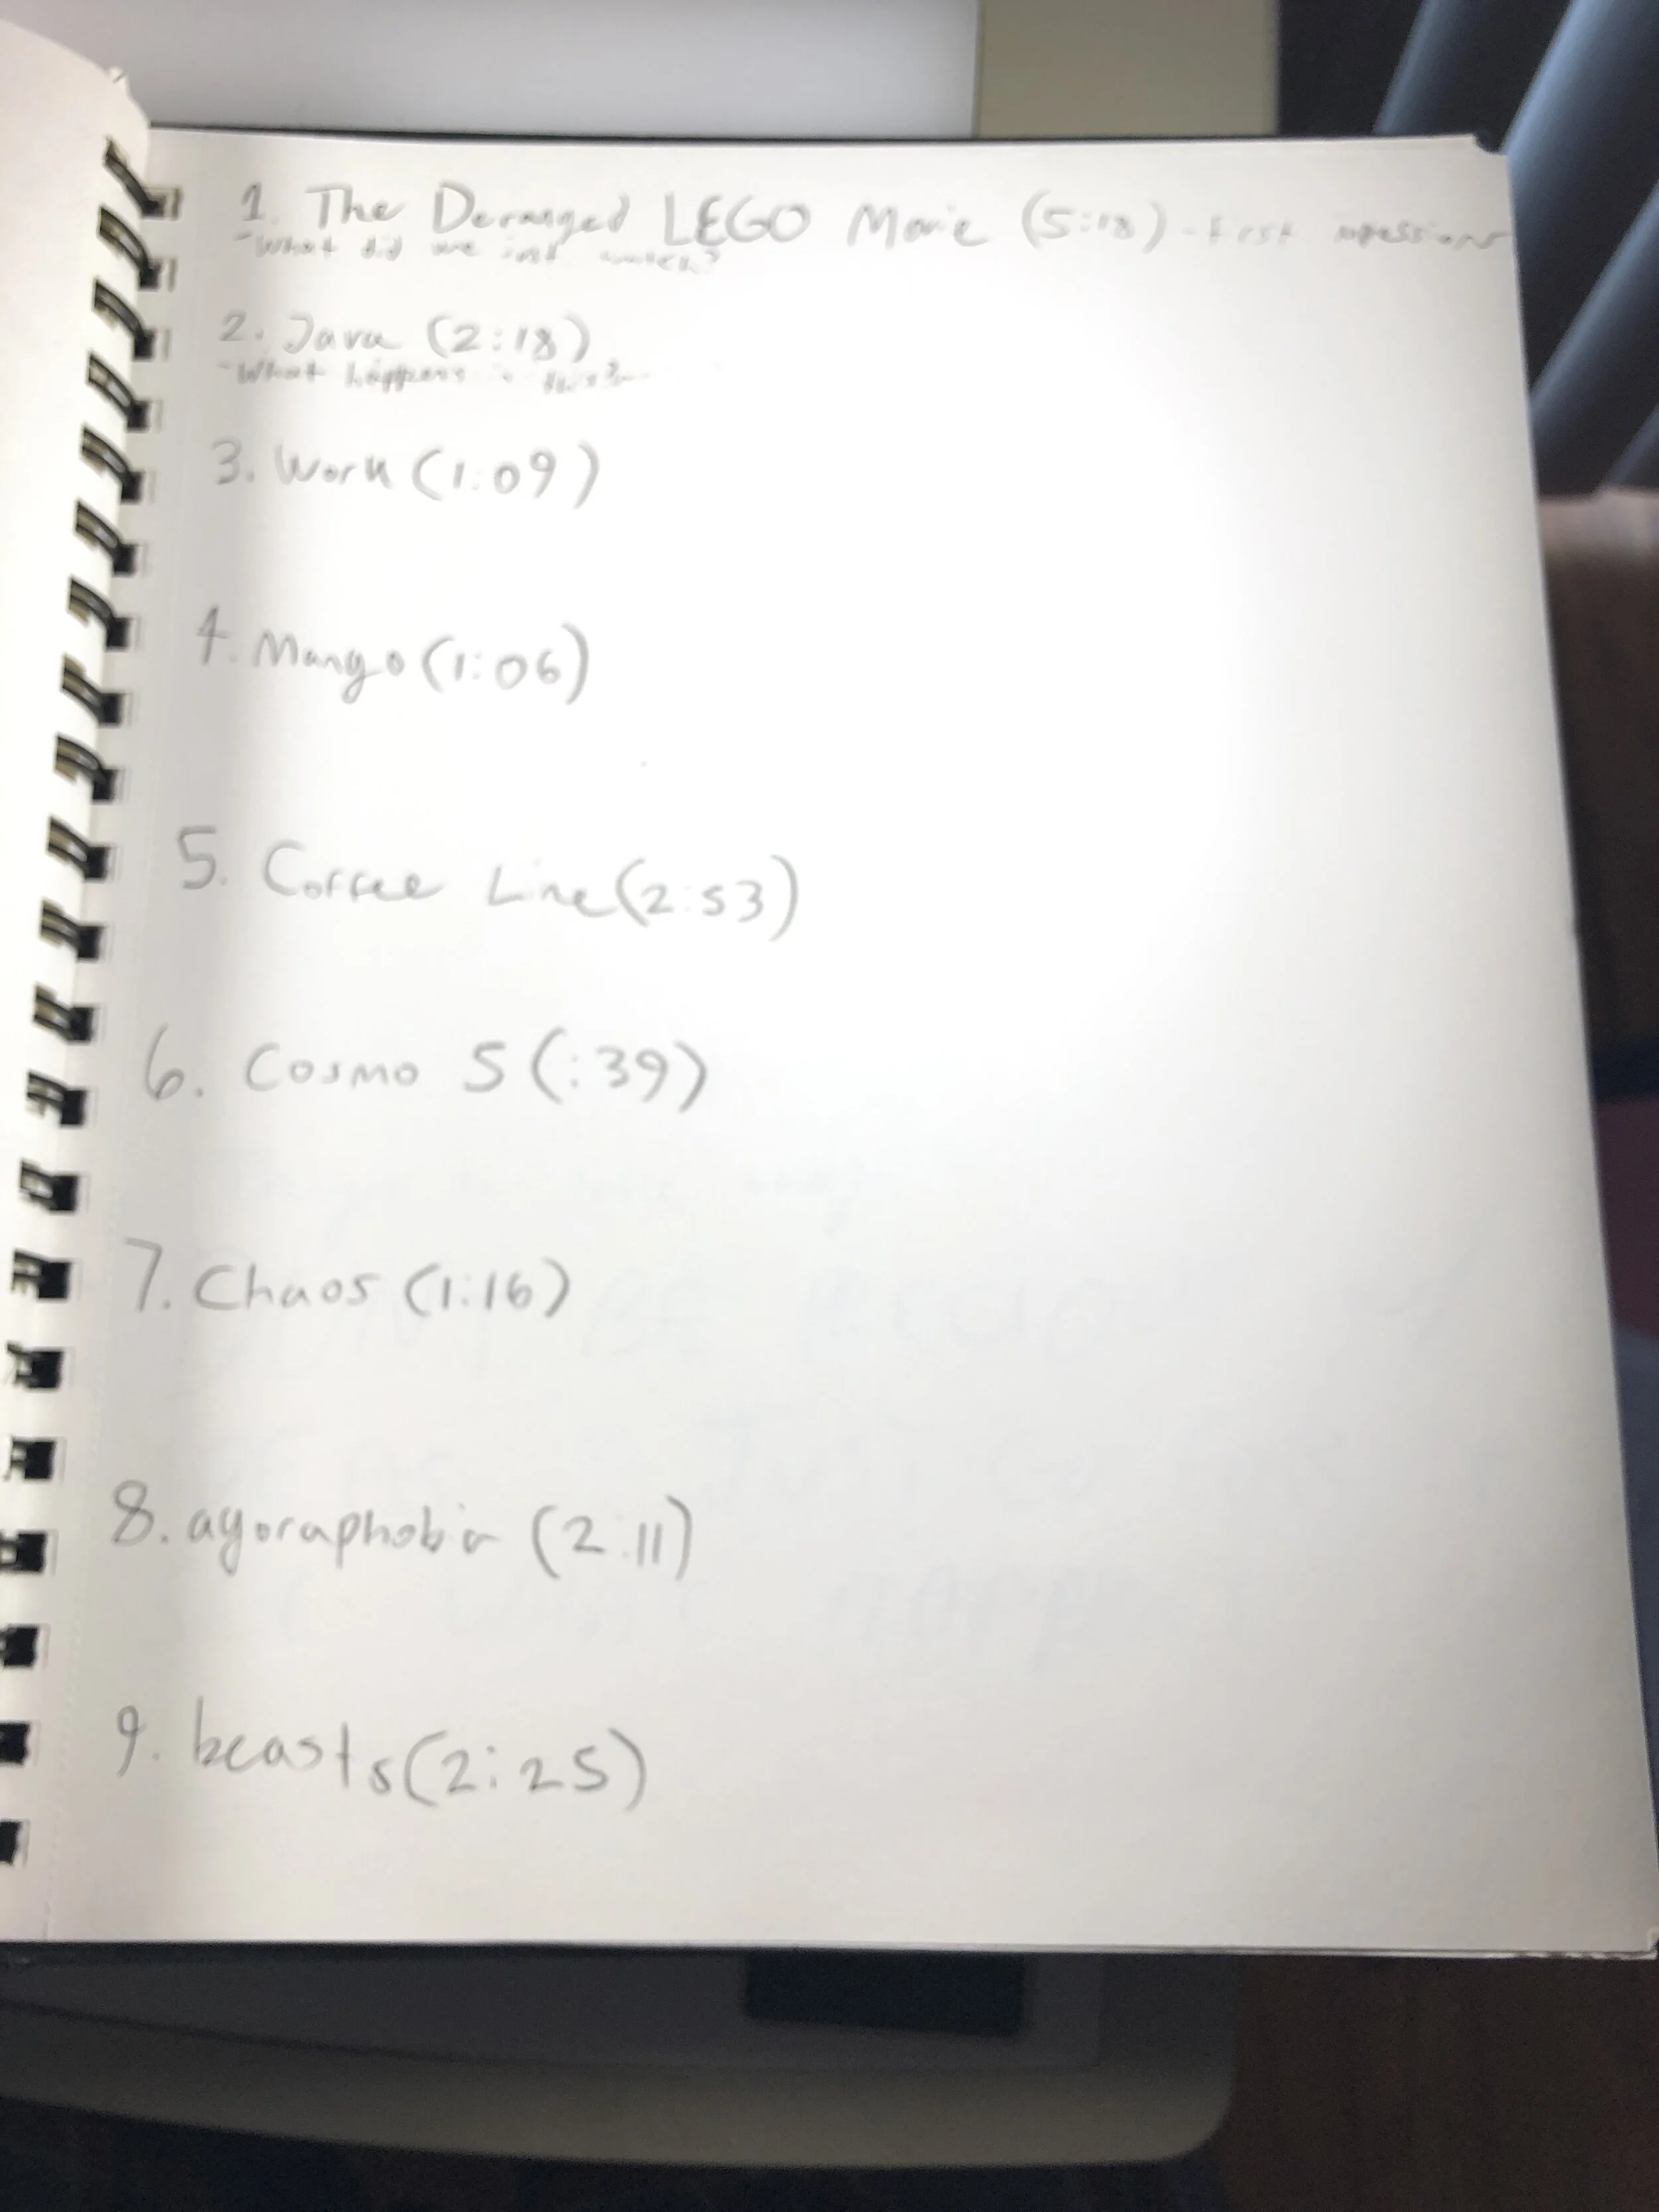 1. The Deranged LEGO Movie (5:18) - first impressions
- What did we just watch?
2. Java (2:18)
- What happens in this?
3. Work (1:09)
4. Mango (1:06)
5. Coffee Line (2:53)
6. Cosmo 5 (:39)
7. Chaos (1:16)
8. agoraphobia (2:11)
9. beasts (2:25)